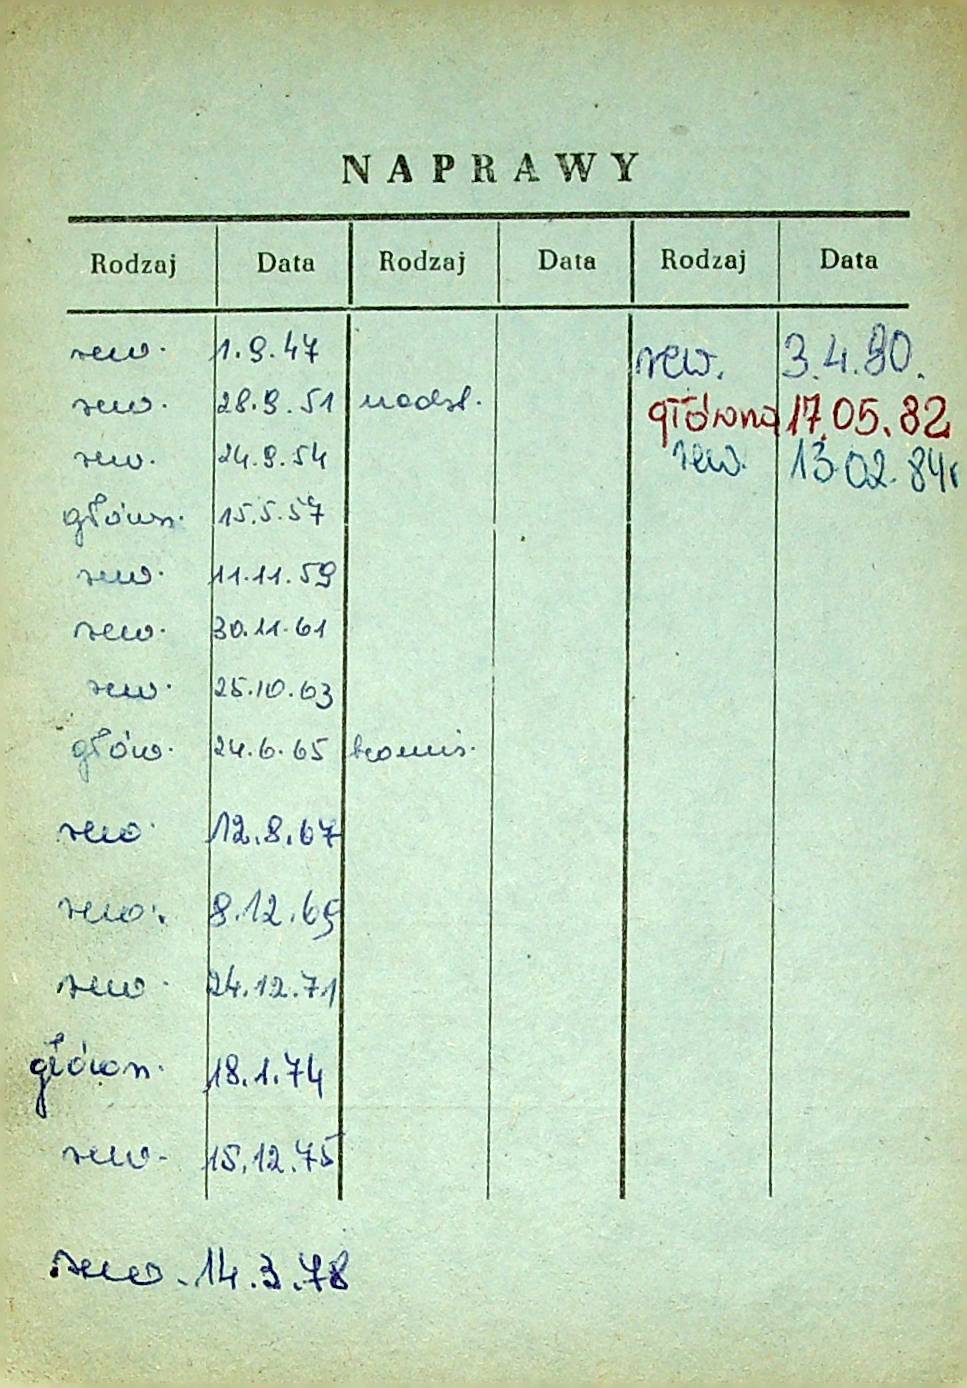 NAPRAWY
Rodzaj Data Rodzaj Data Rodzaj Data
rew. 1.9.47
rew. 28.9.51 nadzl.
rew. 24.9.54
główn. 15.5.57
rew. 11.11.59
rew. 30.11.61
rew. 25.10.63
głów. 24.6.65
rew. 12.8.67
rew. 8.12.69
rew. 24.12.71
główn. 18.1.74
rew. 15.12.75
rew. 14.3.78
rew. 3.4.80.
główna 17.05.82
rew. 13 02.84r